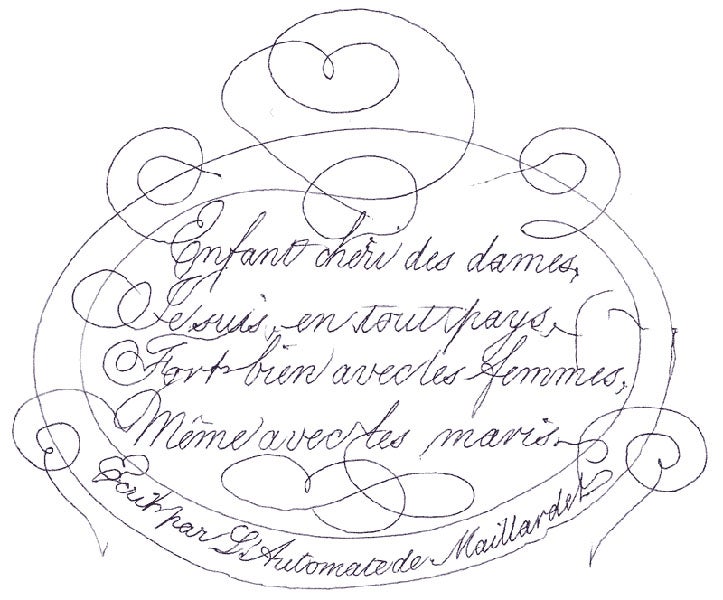 Enfant cheri des dames,
Je suis, en tout pays,
Fort bien avec les femmes,
Même avec les maris.
Ecrit par L'Automate de Maillardet